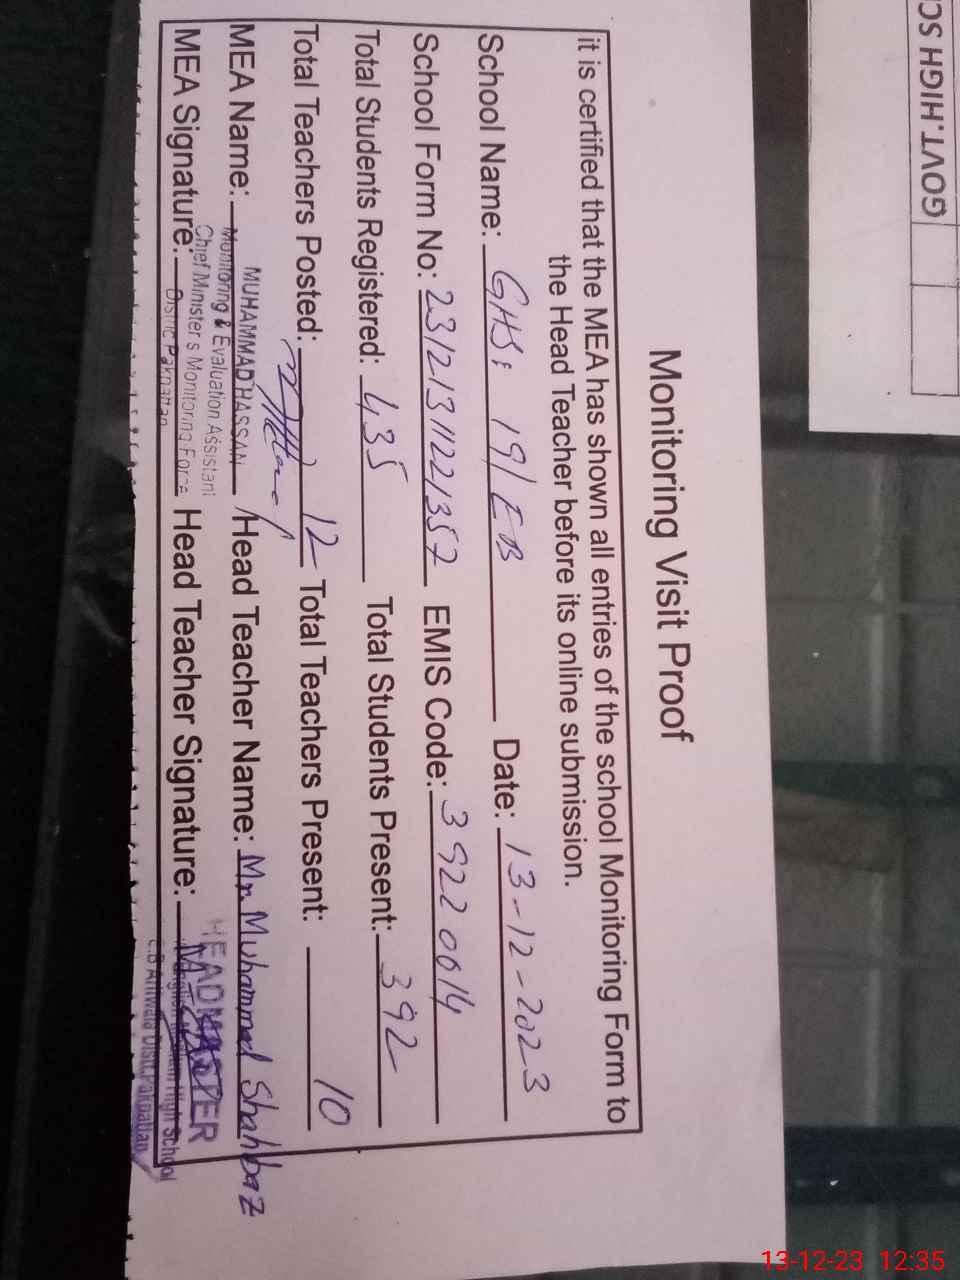 Monitoring Visit Proof
it is certified that the MEA has shown all entries of the school Monitoring Form to
the Head Teacher before its online submission.
School Name: GHS: 19/EB Date: 13-12-2023
School Form No: 23121311221357 EMIS Code: 39220014
Total Students Registered: 435 Total Students Present: 392
Total Teachers Posted: 12 Total Teachers Present: 10
MEA Name: MUHAMMAD HASSAN Head Teacher Name: Mr. Muhammad Shahbaz
Monitoring & Evaluation Assistant
Chief Minister's Monitoring Force
Distric Pakpattan
MEA Signature: Head Teacher Signature:
HEADMASTER
High School
E.B Arifwala Distt. Pakpattan
GOVT.HIGH SC
13-12-23 12:35